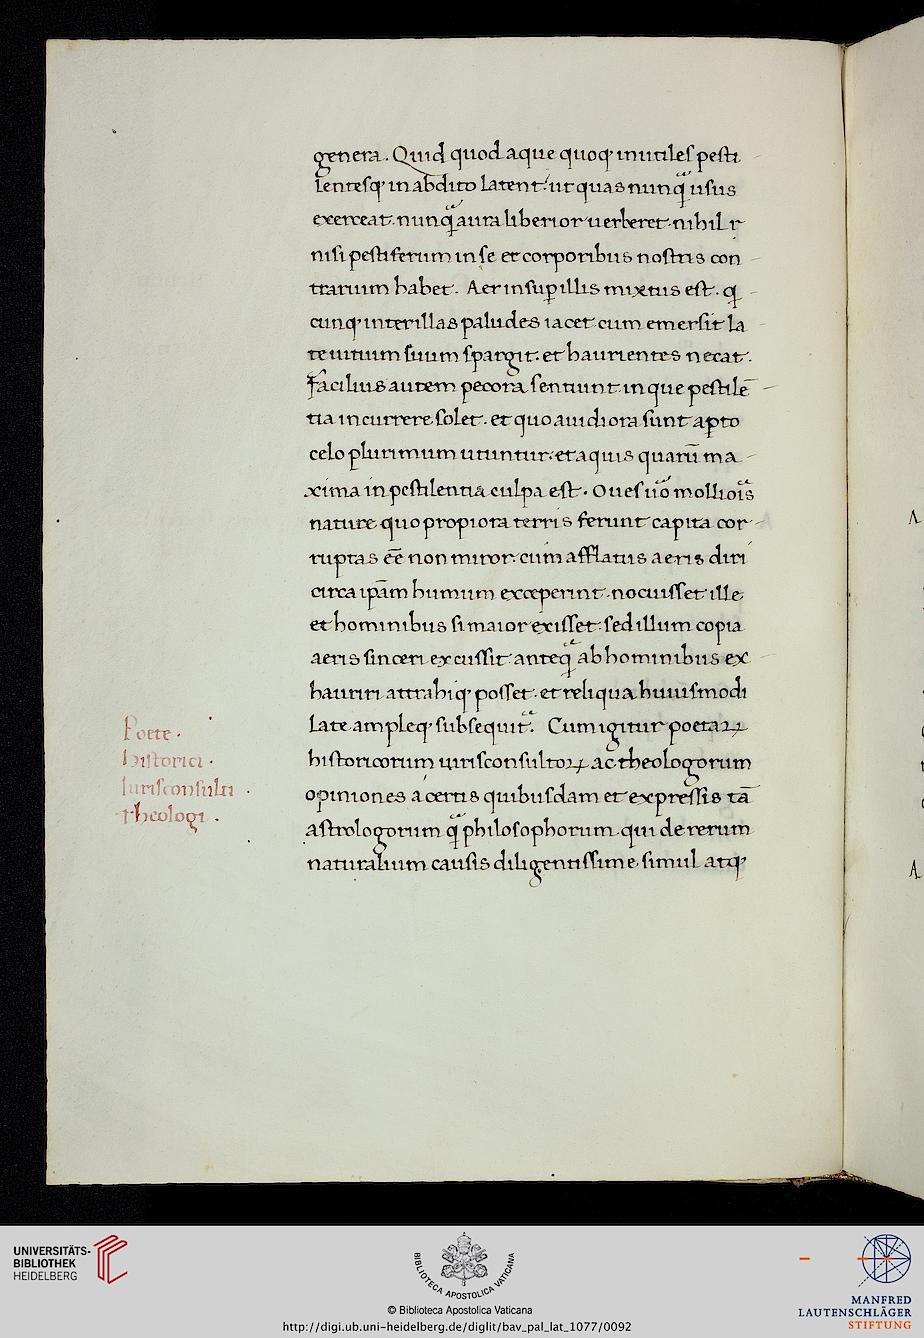 genera. Quid quod aque quoq; inutiles pesti
lentesq; in abdito latent: ut quas nunq̃ usus
exerceat. nunq̃ aura liberior uerberet. nihil r
nisi pestiferum in se et corporibus nostris con
trarium habet. Aer insuꝑ illis mixtus est. q̇
cunq; inter illas paludes iacet. cum emersit la
te uitium suum spargit. et haurientes necat.
Facilius autem pecora sentiunt. in que pestilē
tia incurrere solet. et quo auidiora sunt aꝑto
celo plurimum utuntur. et aquis quarū ma
xima in pestilentia culpa est. Oues uͦo molliois
nature quo propiora terris ferunt capita cor
ruptas eē non miror. cum afflatus aeris diri
circa ipām humum exceperint. nocuisset ille
et hominibus si maior exisset. sed illum copia
aeris sinceri excussit. anteq̃ ab hominibus ex
hauriri attrahiq; posset. et reliqua huiusmodi
late ampleq; subsequit̃. Cum igitur poetaꝝ
historicorum iurisconsultoꝝ ac theologorum
opiniones a certis quibusdam et expressis tā
astrologorum q̃ philosophorum qui de rerum
naturalium causis diligentissime simul atq;
Poete.
historici.
Iurisconsulti.
theologi.
Λ
A
UNIVERSITÄTS-
BIBLIOTHEK
HEIDELBERG
BIBLIOTECA APOSTOLICA VATICANA
© Biblioteca Apostolica Vaticana
http://digi.ub.uni-heidelberg.de/diglit/bav_pal_lat_1077/0092
MANFRED
LAUTENSCHLÄGER
STIFTUNG